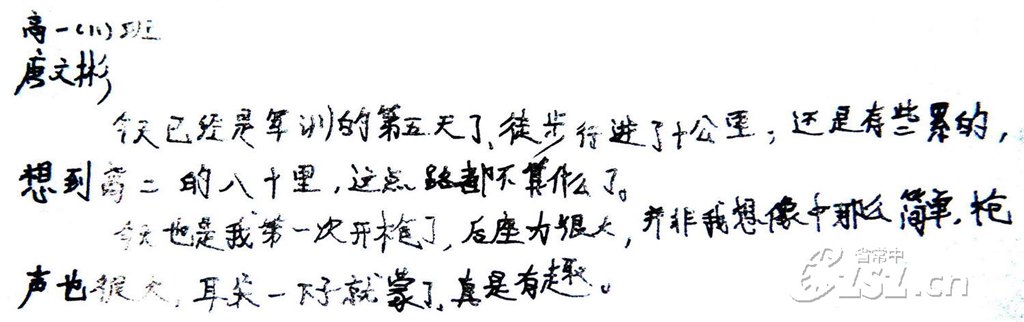 高一(11)班
唐文彬
今天已经是军训的第五天了,徒步行进了十公里,还是有些累的,
想到高二的八十里,这点路都不算什么了。
今天也是我第一次开枪了,后座力很大,并非我想像中那么简单,枪
声也很大,耳朵一下子就蒙了,真是有趣。
省常中
CZSZ.cn